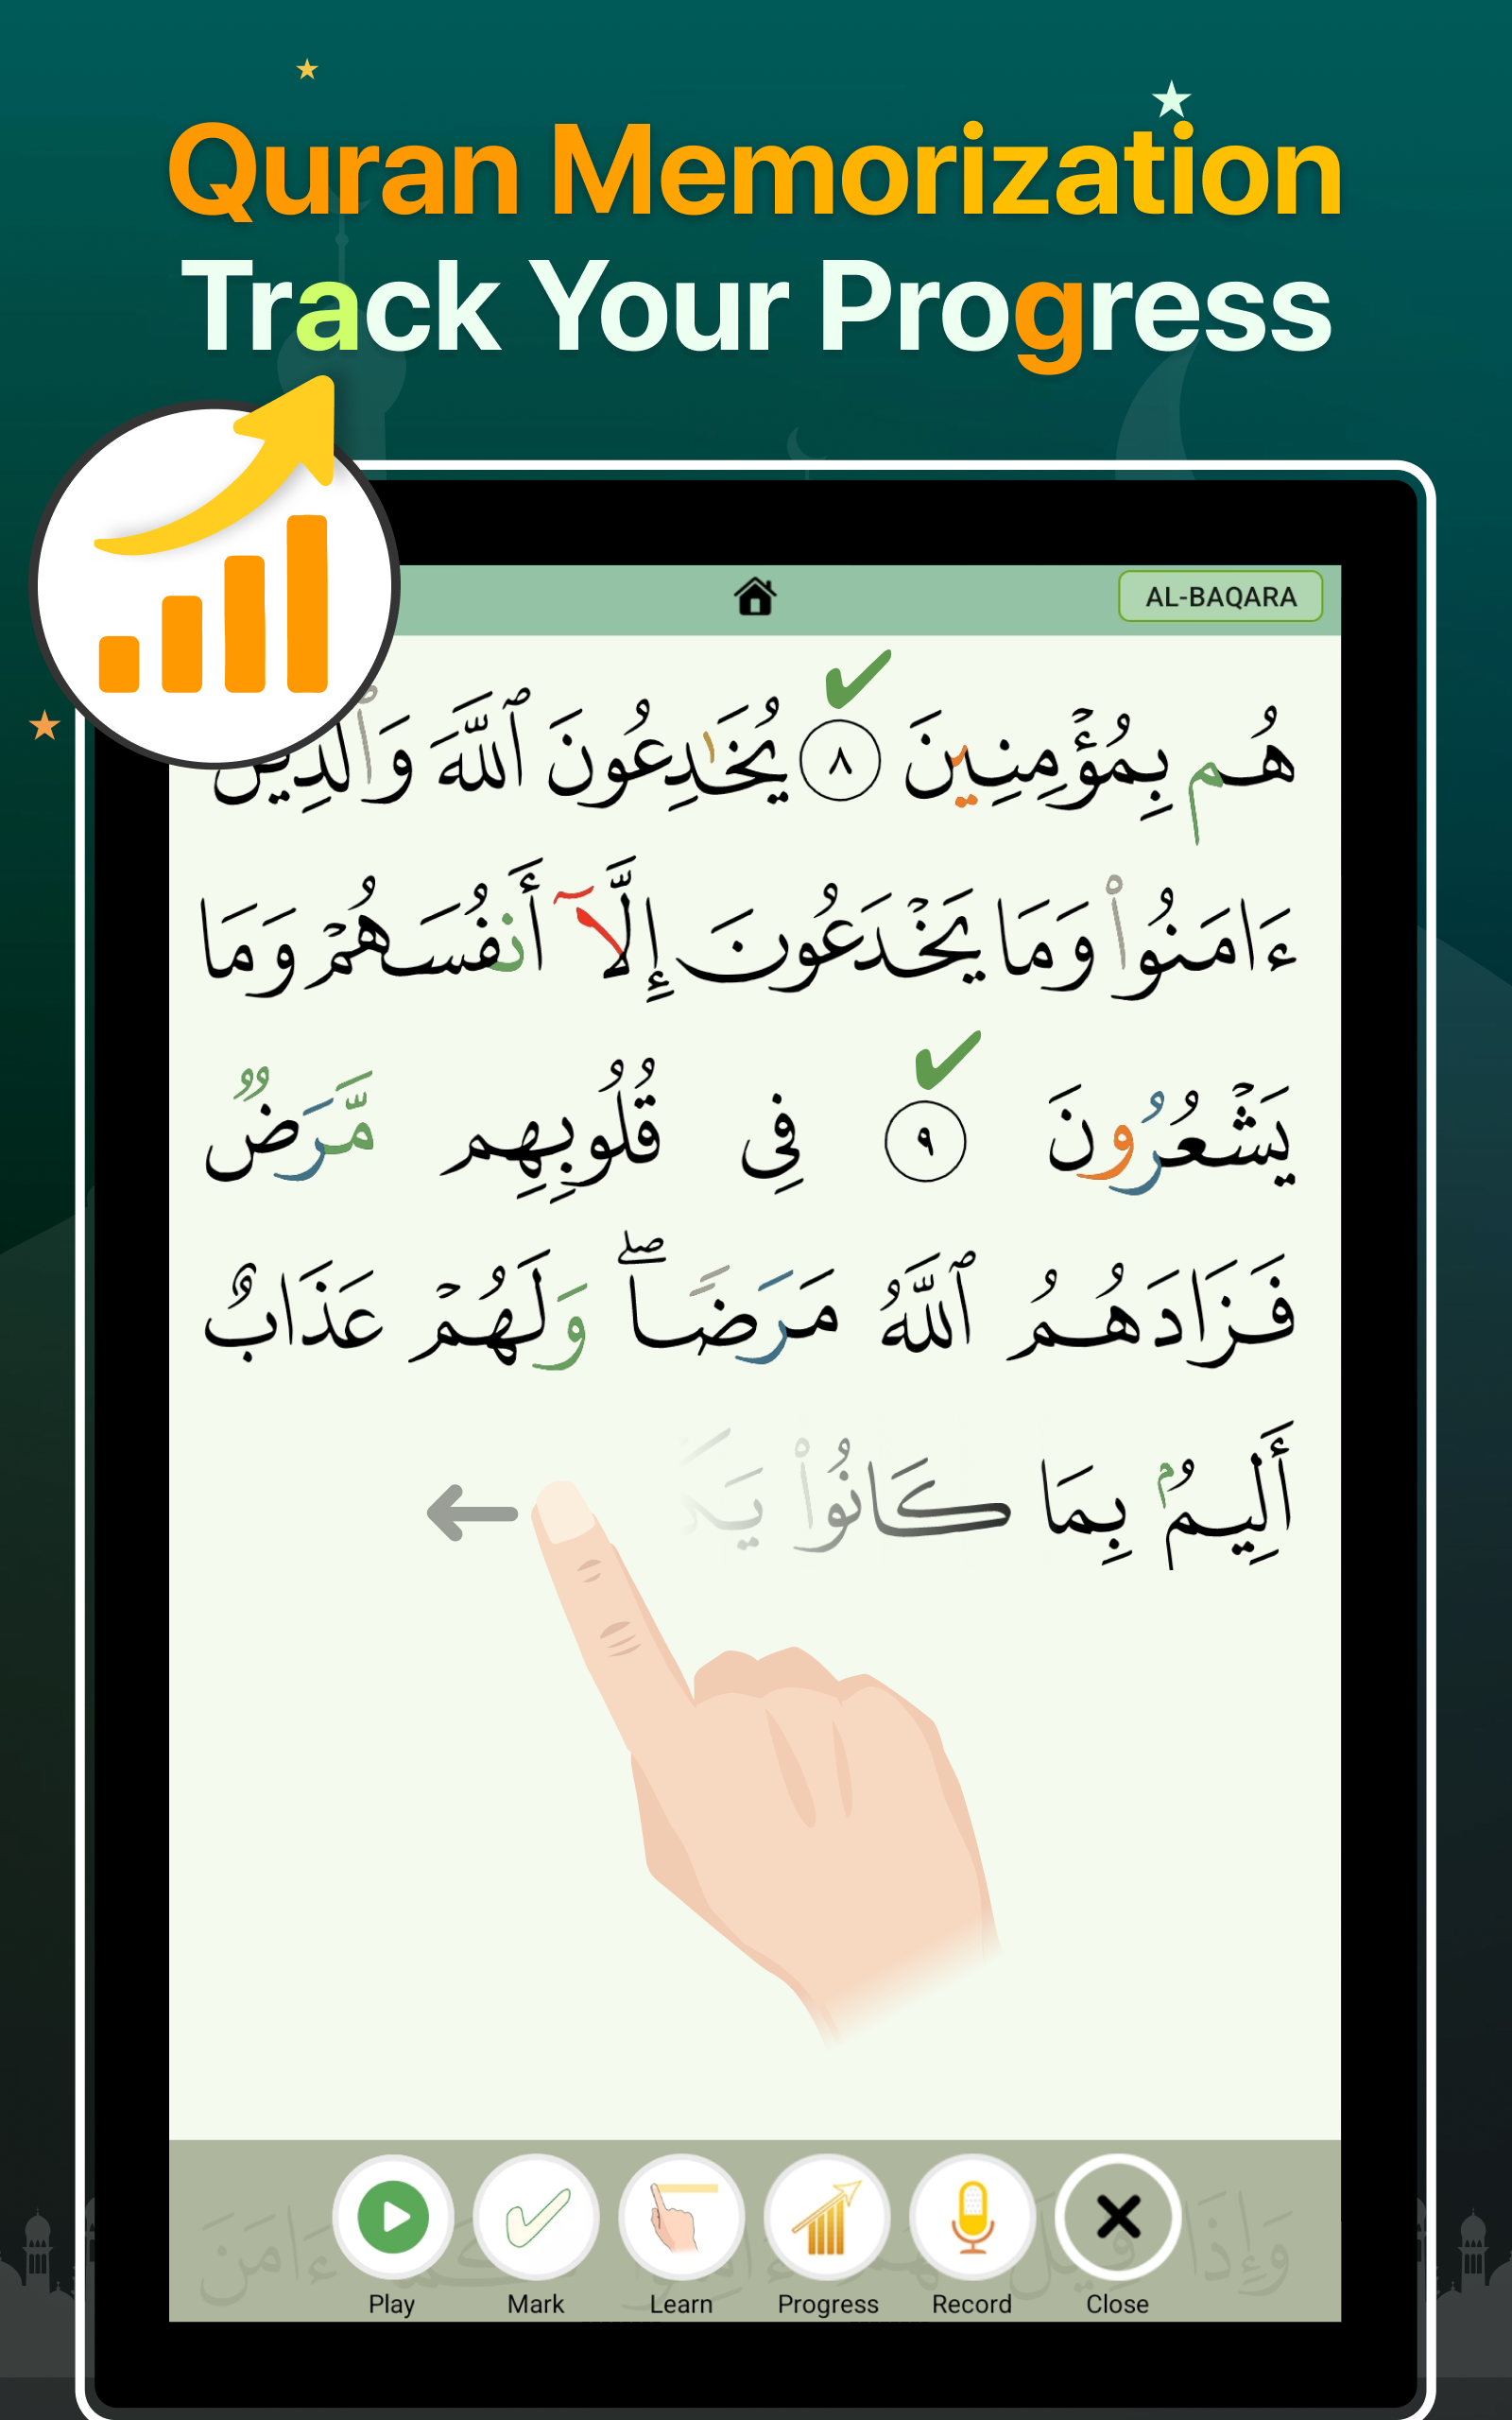 Quran Memorization
Track Your Progress
AL-BAQARA
هُم بِمُؤْمِنِينَ ٨ يُخَٰدِعُونَ ٱللَّهَ وَٱلَّذِينَ
ءَامَنُوا۟ وَمَا يَخْدَعُونَ إِلَّآ أَنفُسَهُمْ وَمَا
يَشْعُرُونَ ٩ فِى قُلُوبِهِم مَّرَضٌ
فَزَادَهُمُ ٱللَّهُ مَرَضًا ۖ وَلَهُمْ عَذَابٌ
أَلِيمٌۢ بِمَا كَانُوا۟
وَإِذَا قِيلَ
Play Mark Learn Progress Record Close